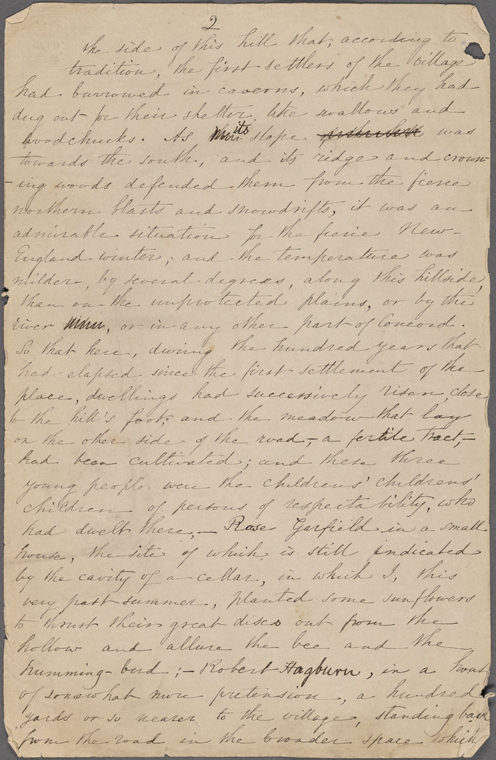 2
the side of this hill that, according to
tradition, the first settlers of the village
had burrowed in caverns, which they had
dug out for their shelter, like swallows and
woodchucks. As its slope was
towards the south, and its ridge and crown-
-ing woods defended them from the fierce
northern blasts and snowdrifts, it was an
admirable situation for the fierce New-
England winter; and the temperature was
milder, by several degrees, along this hillside,
than on the unprotected plains, or by the
river, or in any other part of Concord.
So that here, during the hundred years that
had elapsed since the first settlement of the
place, dwellings had successively risen, close
to the hill's foot; and the meadow that lay
on the other side of the road,—a fertile tract,—
had been cultivated; and these three
young people were the childrens' childrens'
children of persons of respectability, who
had dwelt there,—Rose Garfield in a small
house, the site of which is still indicated
by the cavity of a cellar, in which I, this
very past summer, planted some sunflowers
to thrust their great discs out from the
hollow and allure the bee and the
humming-bird;—Robert Hagburn, in a house
of somewhat more pretension, a hundred
yards or so nearer to the village, standing back
from the road in the broader space which